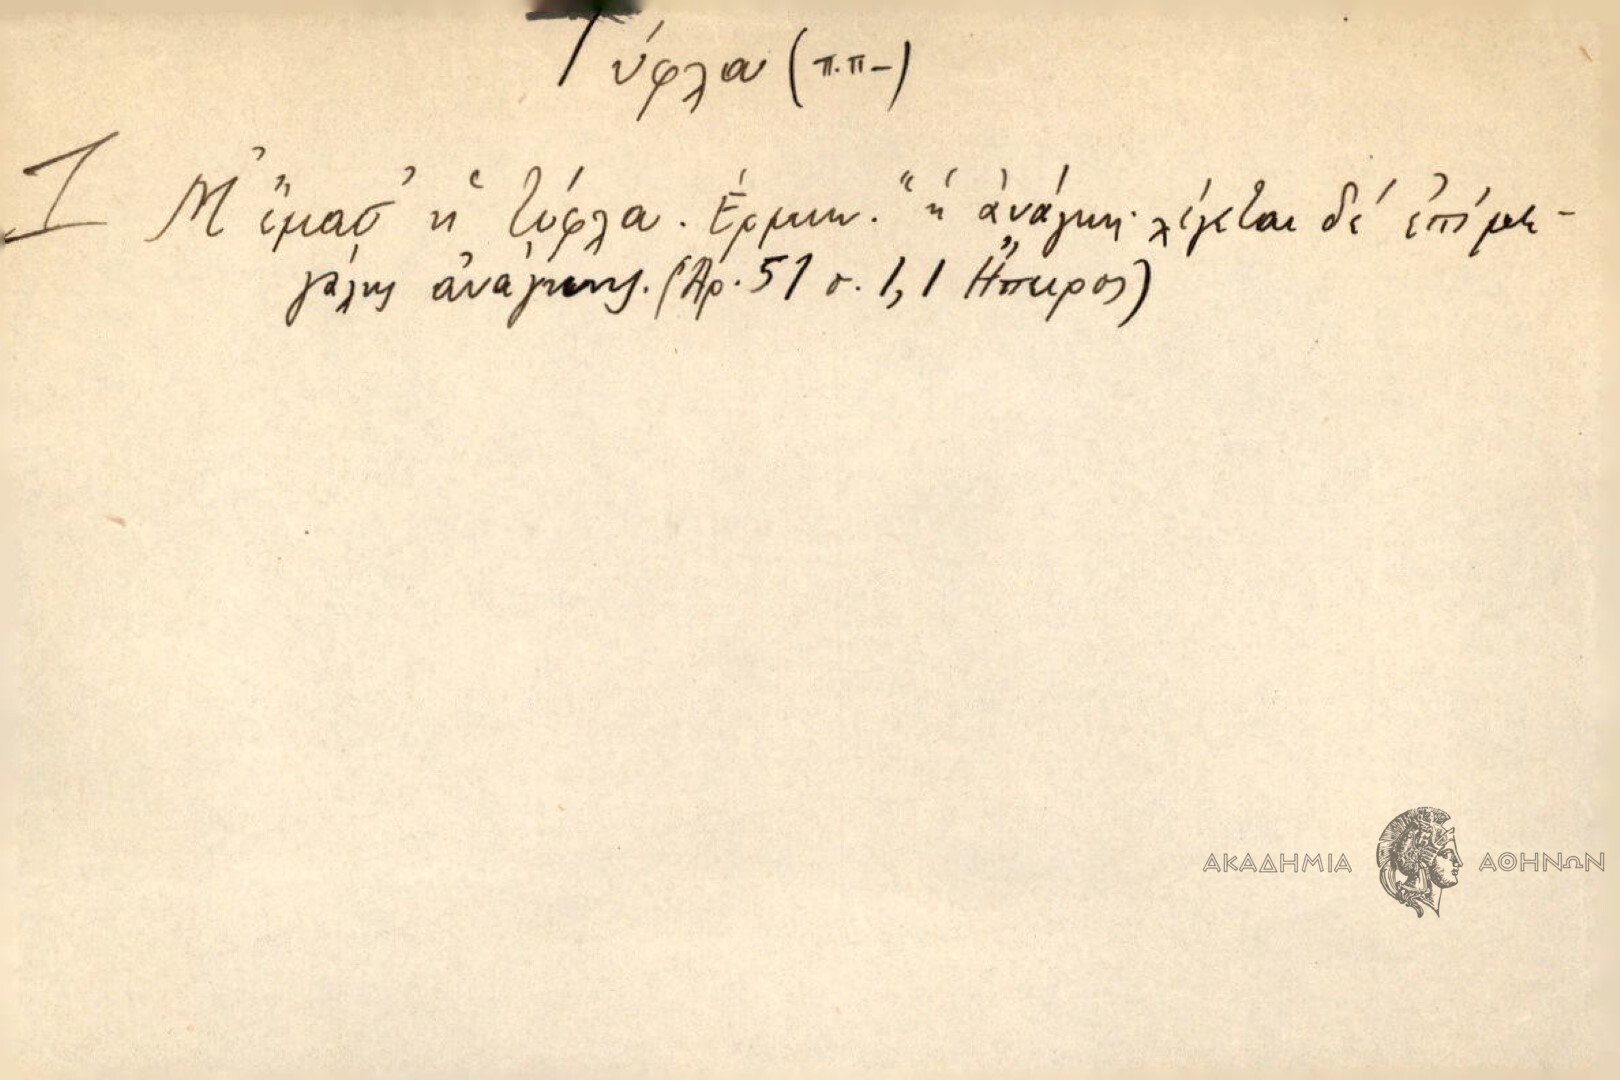 Τύφλα (π.π-)
1 Μ' ἔμασ' ἡ τύφλα. Ἑρμην. "ἡ ἀνάγκη· λέγεται δὲ ἐπὶ με-
γάλης ἀνάγκης." (Ἀρ. 51 σ. 1,1 Ἤπειρος)
ΑΚΑΔΗΜΙΑ ΑΘΗΝΩΝ